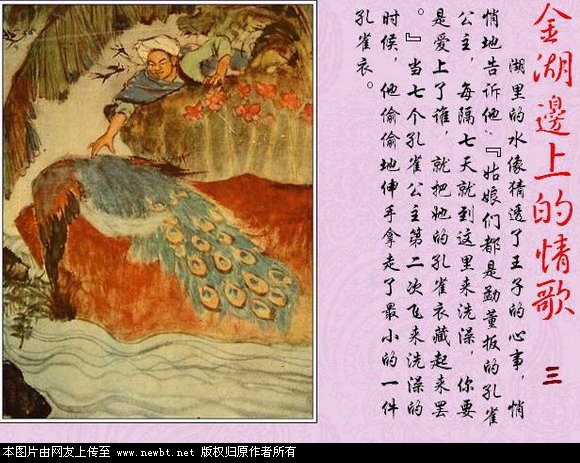 金湖邊上的情歌 三
湖里的水像猜透了王子的心事，悄
悄地告诉他：『姑娘们都是勐董板的孔雀
公主，每隔七天就到这里来洗澡，你要
是爱上了谁，就把她的孔雀衣藏起来罢
。』当七个孔雀公主第二次飞来洗澡的
时候，他偷偷地伸手拿走了最小的一件
孔雀衣。
本图片由网友上传至 www.newbt.net 版权归原作者所有